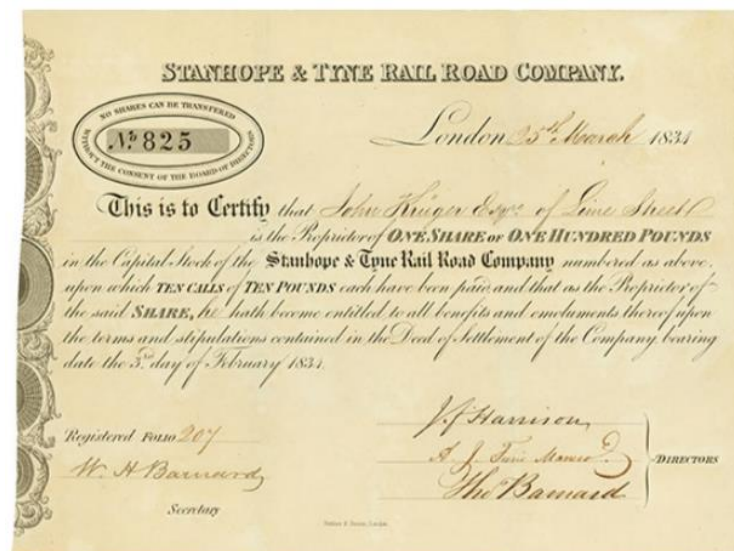 STANHOPE & TYNE RAIL ROAD COMPANY.
NO SHARES CAN BE TRANSFERED
WITHOUT THE CONSENT OF THE BOARD OF DIRECTORS
No. 825
London 25th March 1834
This is to Certify that John Krüger Esqre of Lime Street
is the Proprietor of ONE SHARE OF ONE HUNDRED POUNDS
in the Capital Stock of the Stanhope & Tyne Rail Road Company numbered as above,
upon which TEN CALLS of TEN POUNDS each have been paid and that as the Proprietor of
the said SHARE, he hath become entitled to all benefits and emoluments thereof upon
the terms and stipulations contained in the Deed of Settlement of the Company bearing
date the 3rd day of February 1834.
Registered FOLIO 207
W. H Barnard
Secretary
J. J Harrison
A. J.
Tho Barnard
DIRECTORS
London